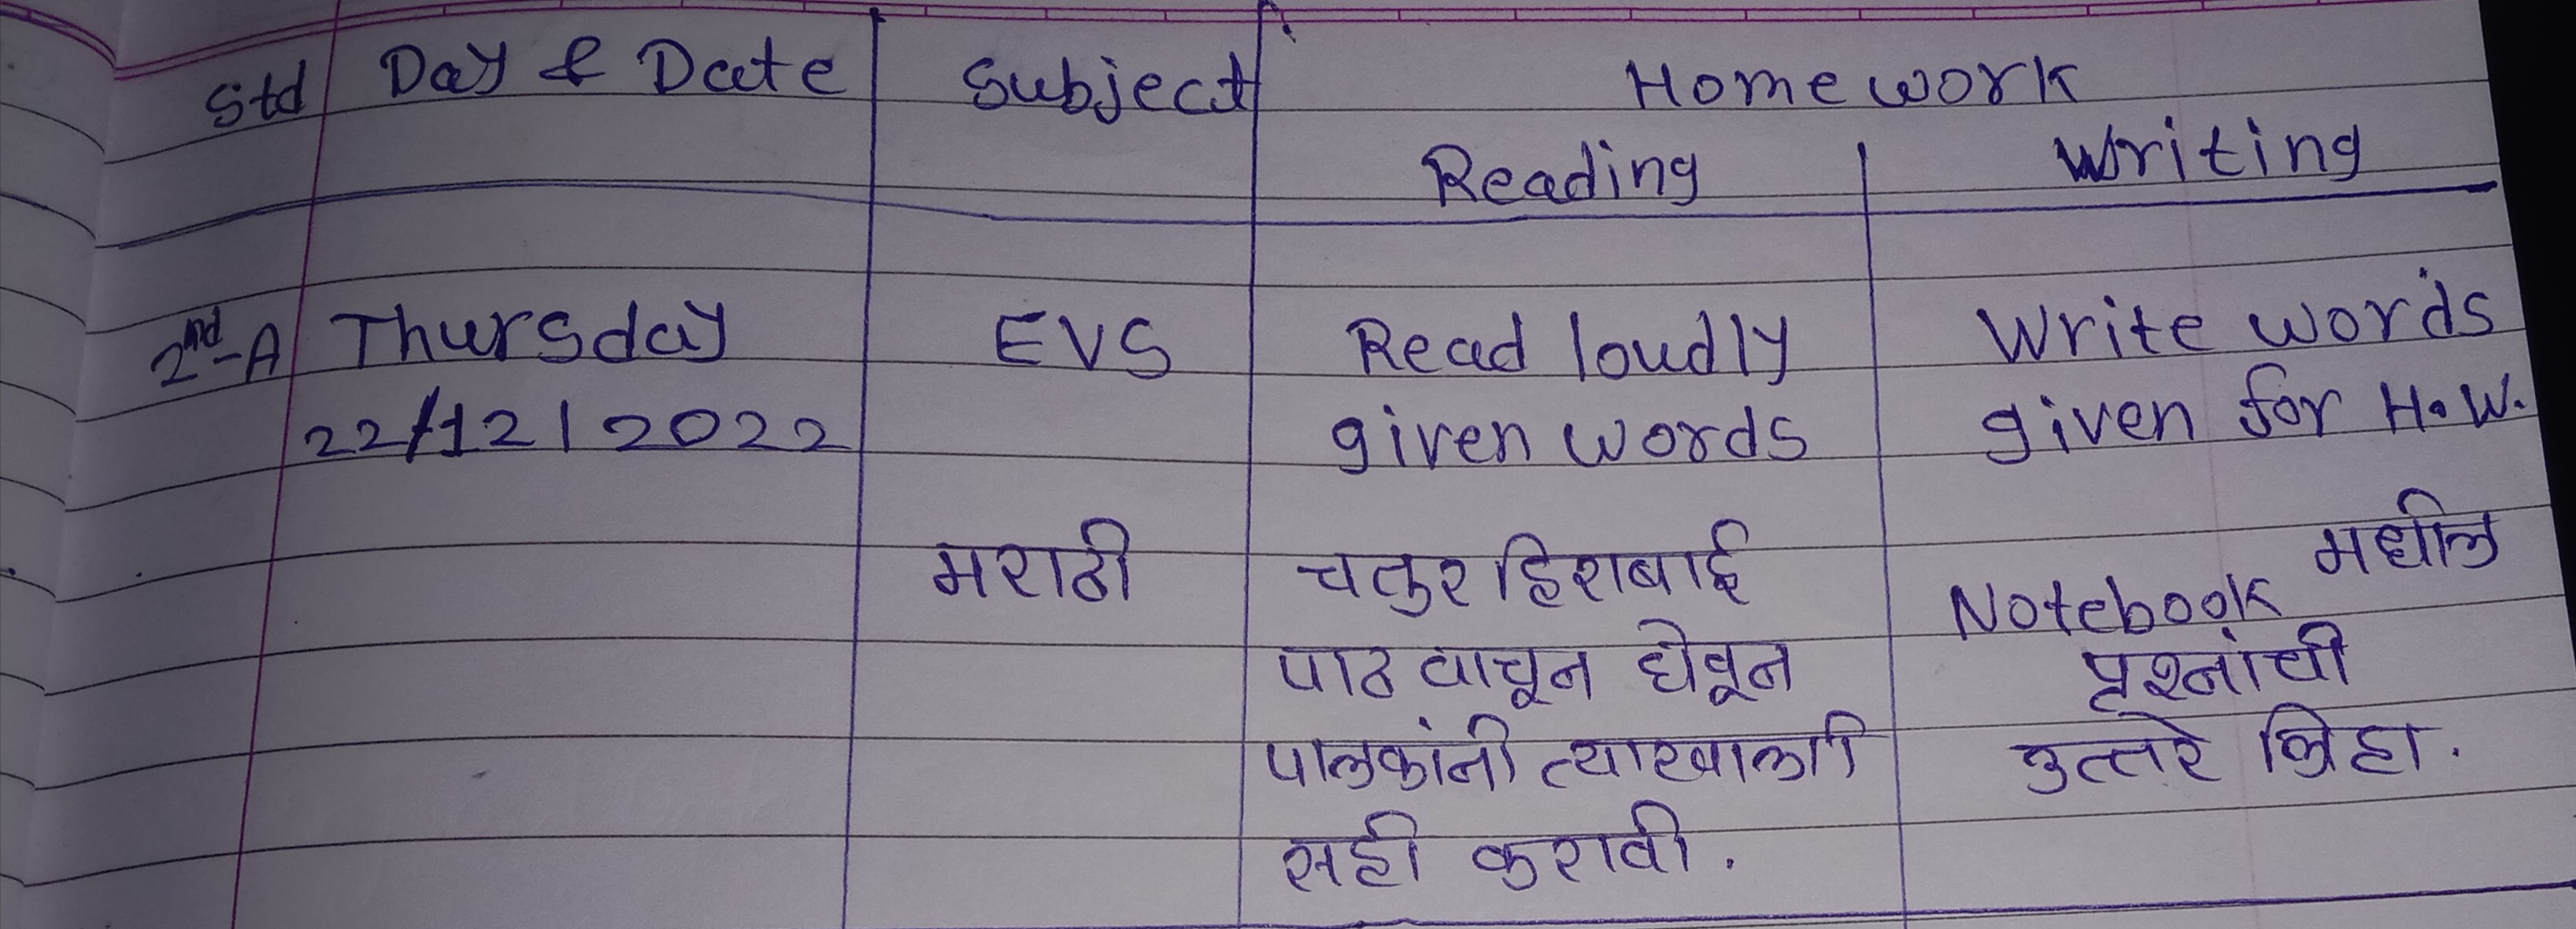 Std Day & Date Subject Homework
Reading Writing
2nd-A Thursday EVS Read loudly Write words
22/12/2022 given words given for H.W.
मराठी चतुर हिराबाई Notebook मधील
पाठ वाचून घेवून प्रश्नांची
पालकांनी त्याखाली उत्तरे लिहा.
सही करावी.